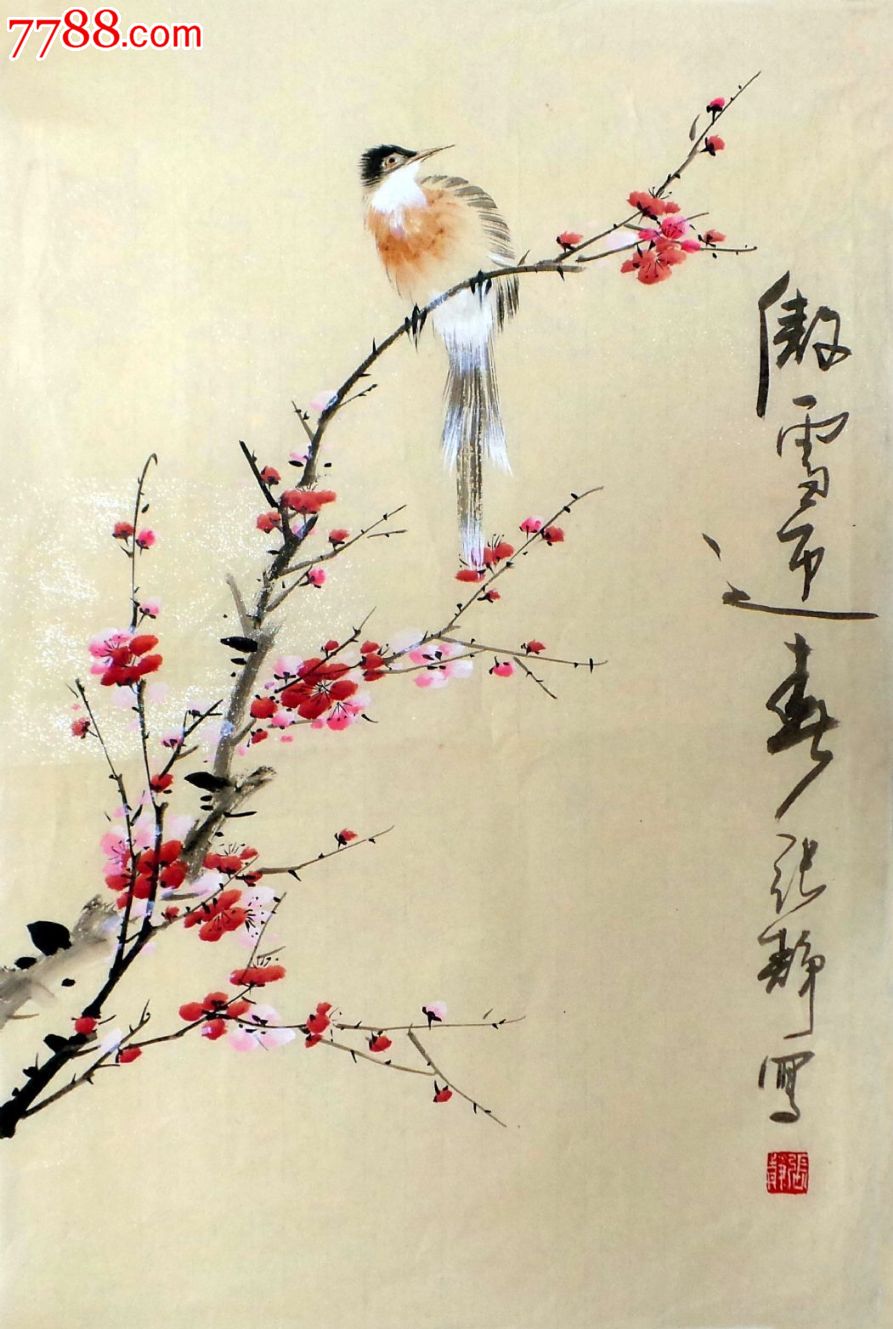 7788.com
傲雪迎春 张静写
張靜